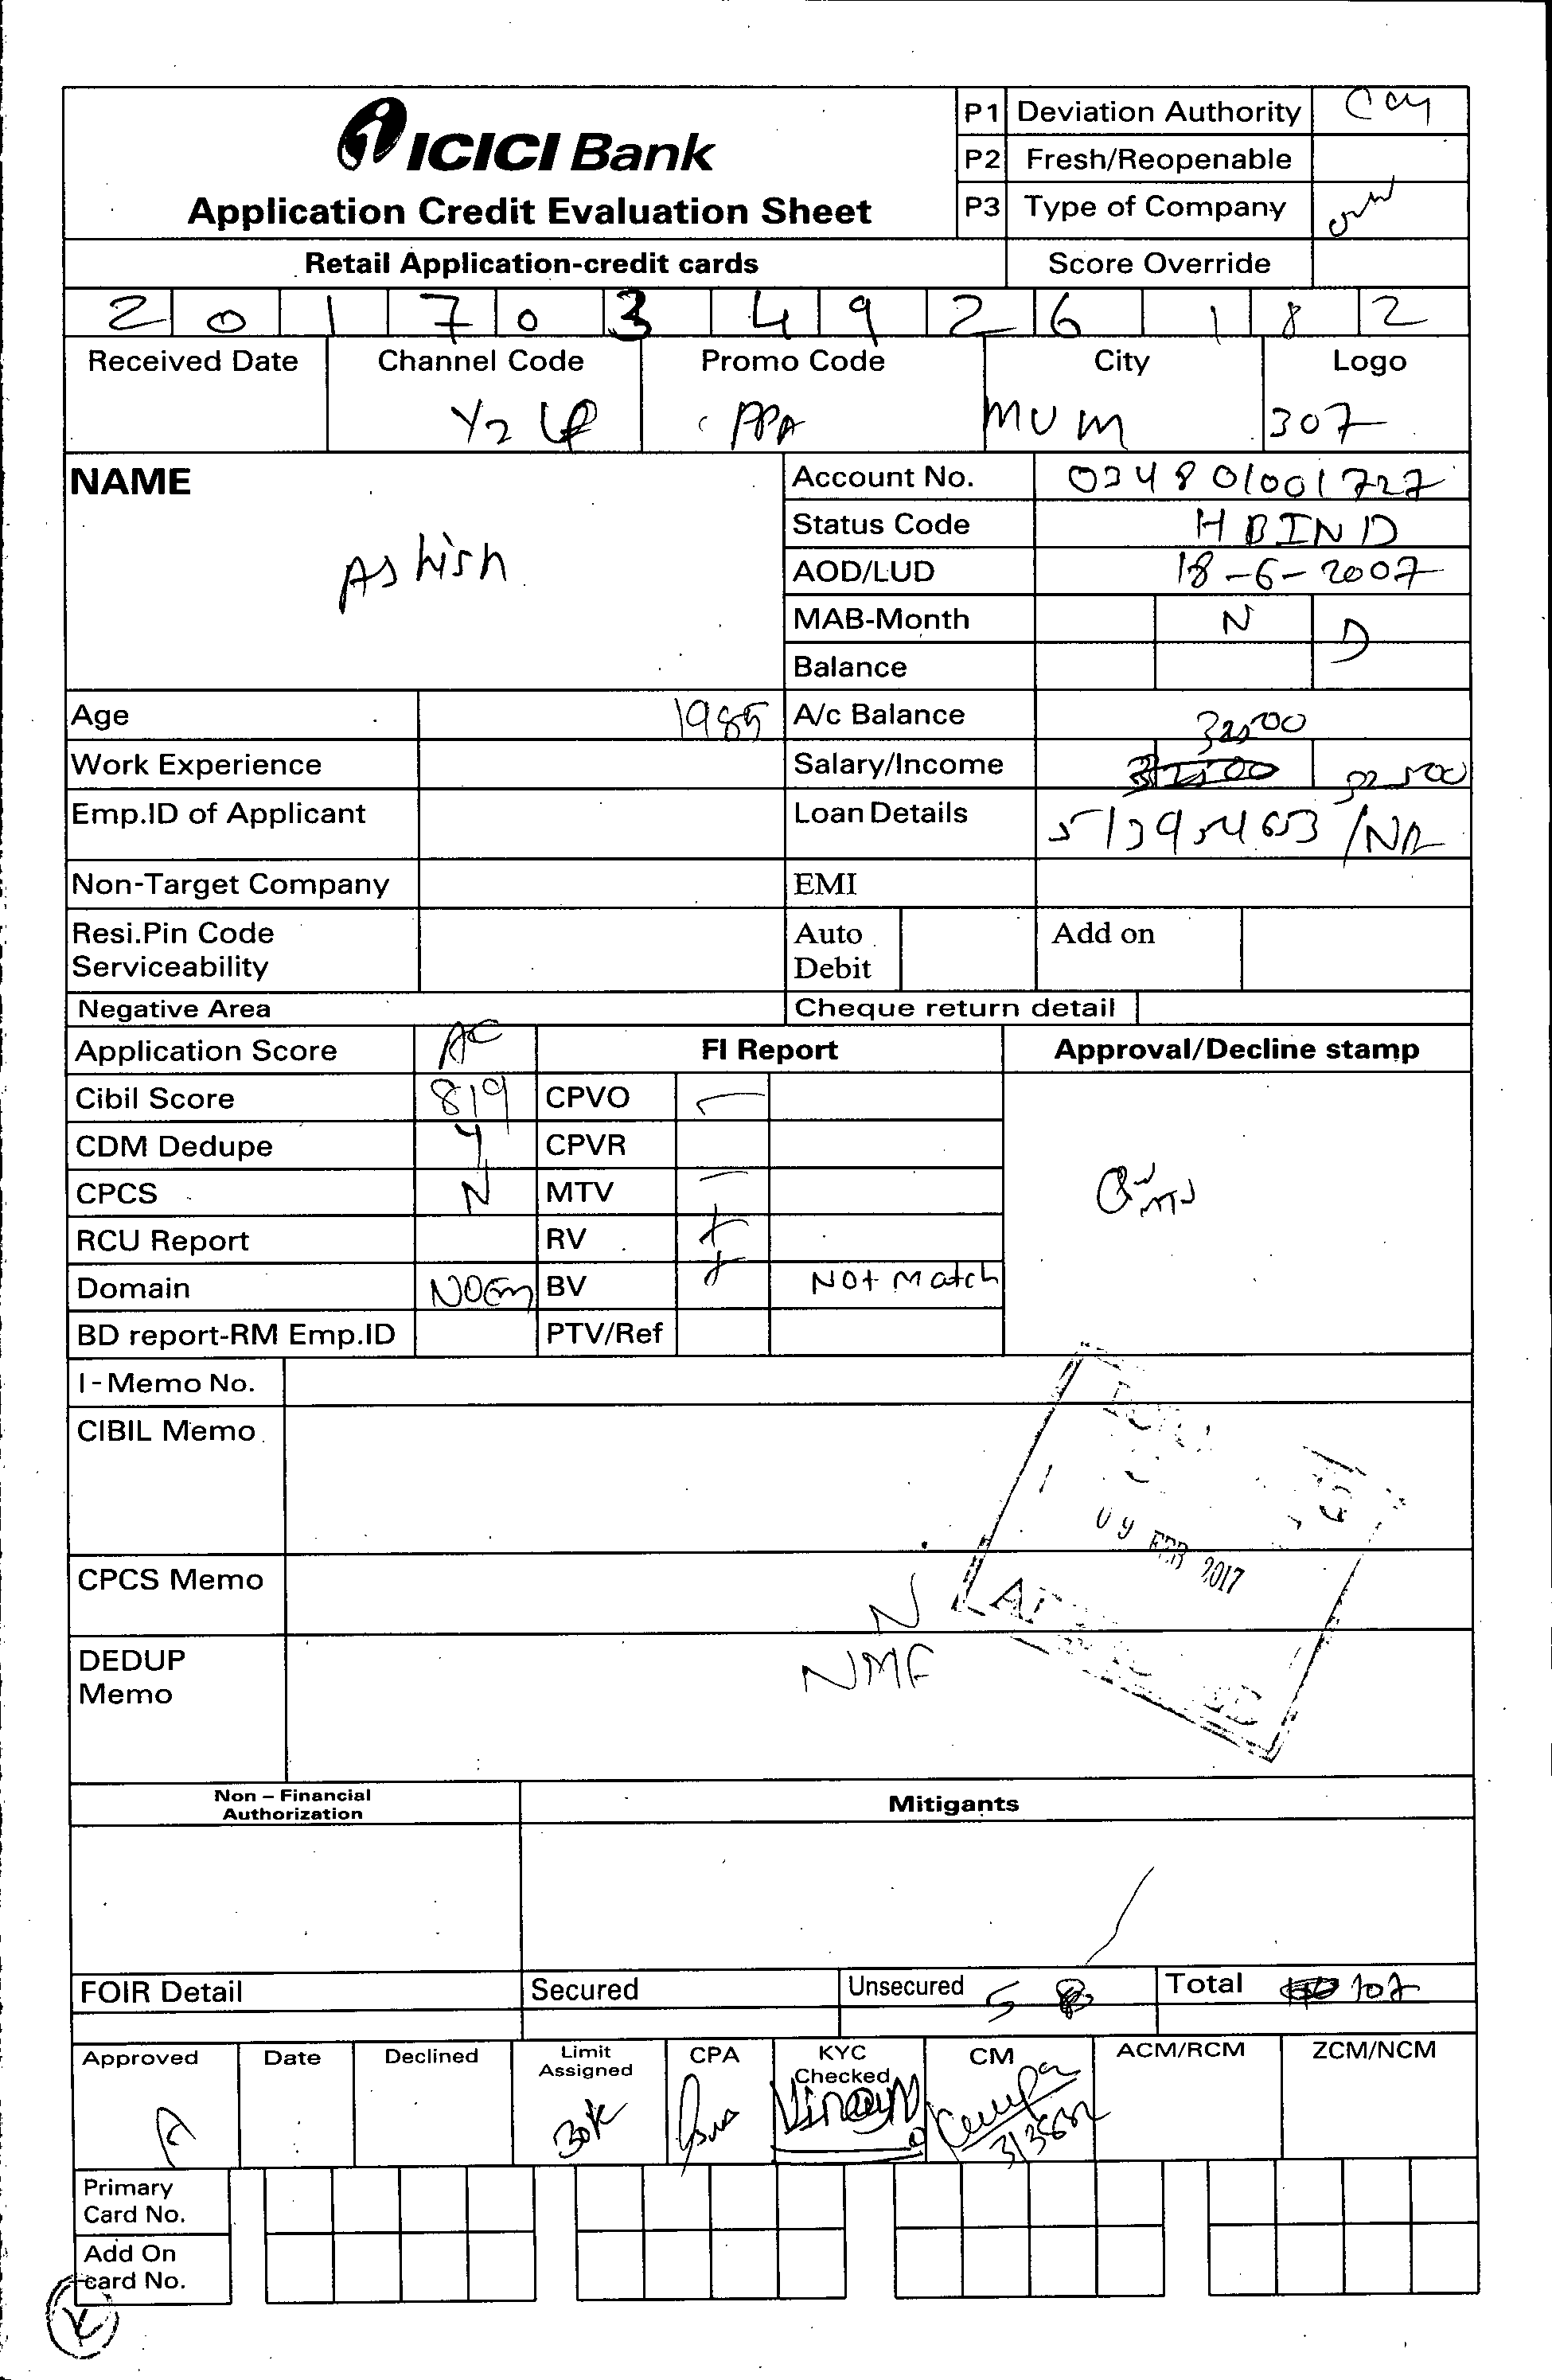 ICICI Bank
Application Credit Evaluation Sheet
P1 Deviation Authority
P2 Fresh/Reopenable
P3 Type of Company
Retail Application-credit cards Score Override
2 0 1 7 0 3 4 9 2 6 1 8 2
Received Date Channel Code Promo Code City Logo
Y2 PPA MUM 307
NAME
Ashish
Account No. 034801001727
Status Code HBIND
AOD/LUD 18-6-2007
MAB-Month N D
Balance
Age 1985 A/c Balance
Work Experience Salary/Income
Emp.ID of Applicant Loan Details
Non-Target Company EMI
Resi.Pin Code Serviceability Auto Debit Add on
Negative Area Cheque return detail
Application Score AC FI Report Approval/Decline stamp
Cibil Score 819 CPVO
CDM Dedupe Y CPVR
CPCS N MTV
RCU Report RV +
Domain BV + Not Match
BD report-RM Emp.ID PTV/Ref
I-Memo No.
CIBIL Memo
09 FEB 2017
CPCS Memo N
DEDUP Memo NMF
Non – Financial Authorization Mitigants
FOIR Detail Secured Unsecured Total
Approved Date Declined Limit Assigned CPA KYC Checked CM ACM/RCM ZCM/NCM
A 30k
Primary Card No.
Add On card No.